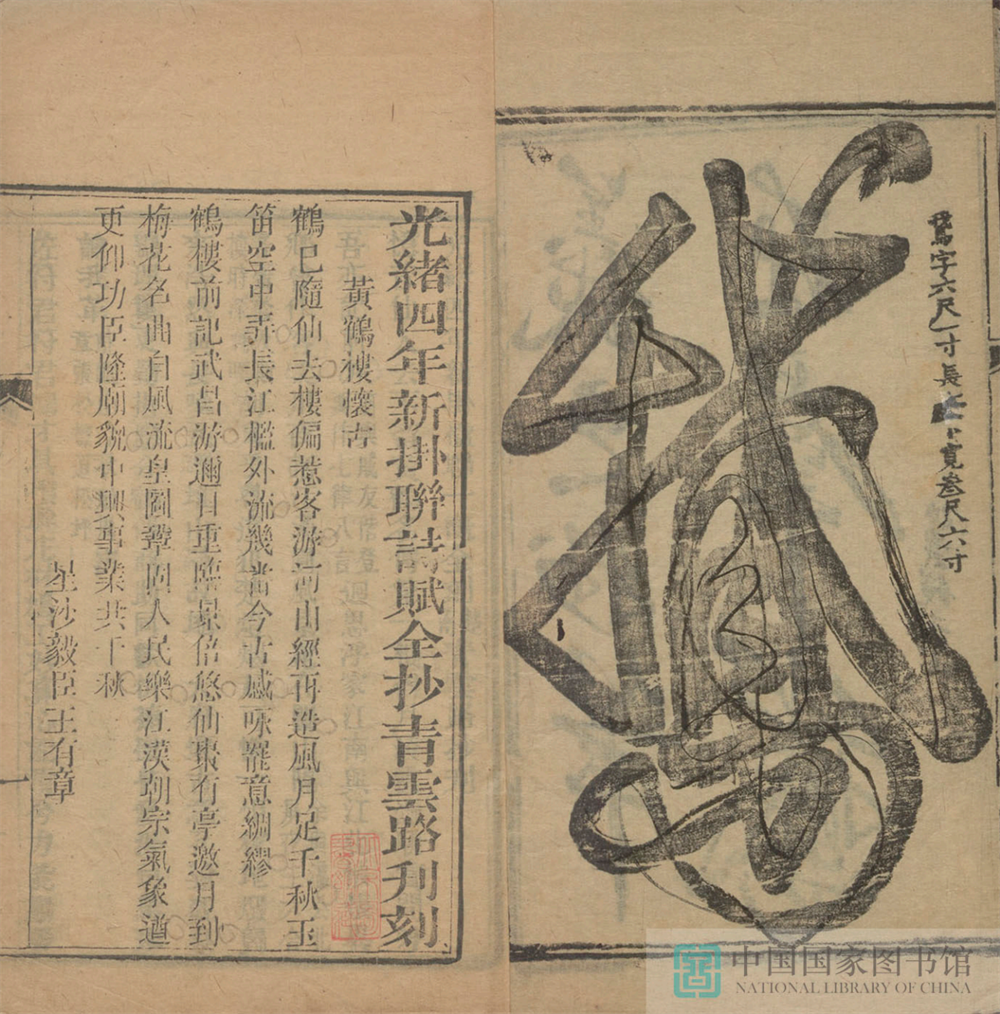 鵞字六尺一寸長
寬叁尺六寸
鵞
光緒四年新掛聯詩賦全抄青雲路刊刻
黃鶴樓懷古
鶴已隨仙去樓偏惹客游河山經再造風月足千秋玉
笛空中弄長江檻外流幾番今古感咏罷意綢繆
鶴樓前記武昌游邇日重臨景倍悠仙棗有亭邀月到
梅花名曲自風流皇圖鞏固人民樂江漢朝宗氣象遒
更仰功臣隆廟貌中興事業共千秋
星沙毅臣王有章
中国国家图书馆
NATIONAL LIBRARY OF CHINA